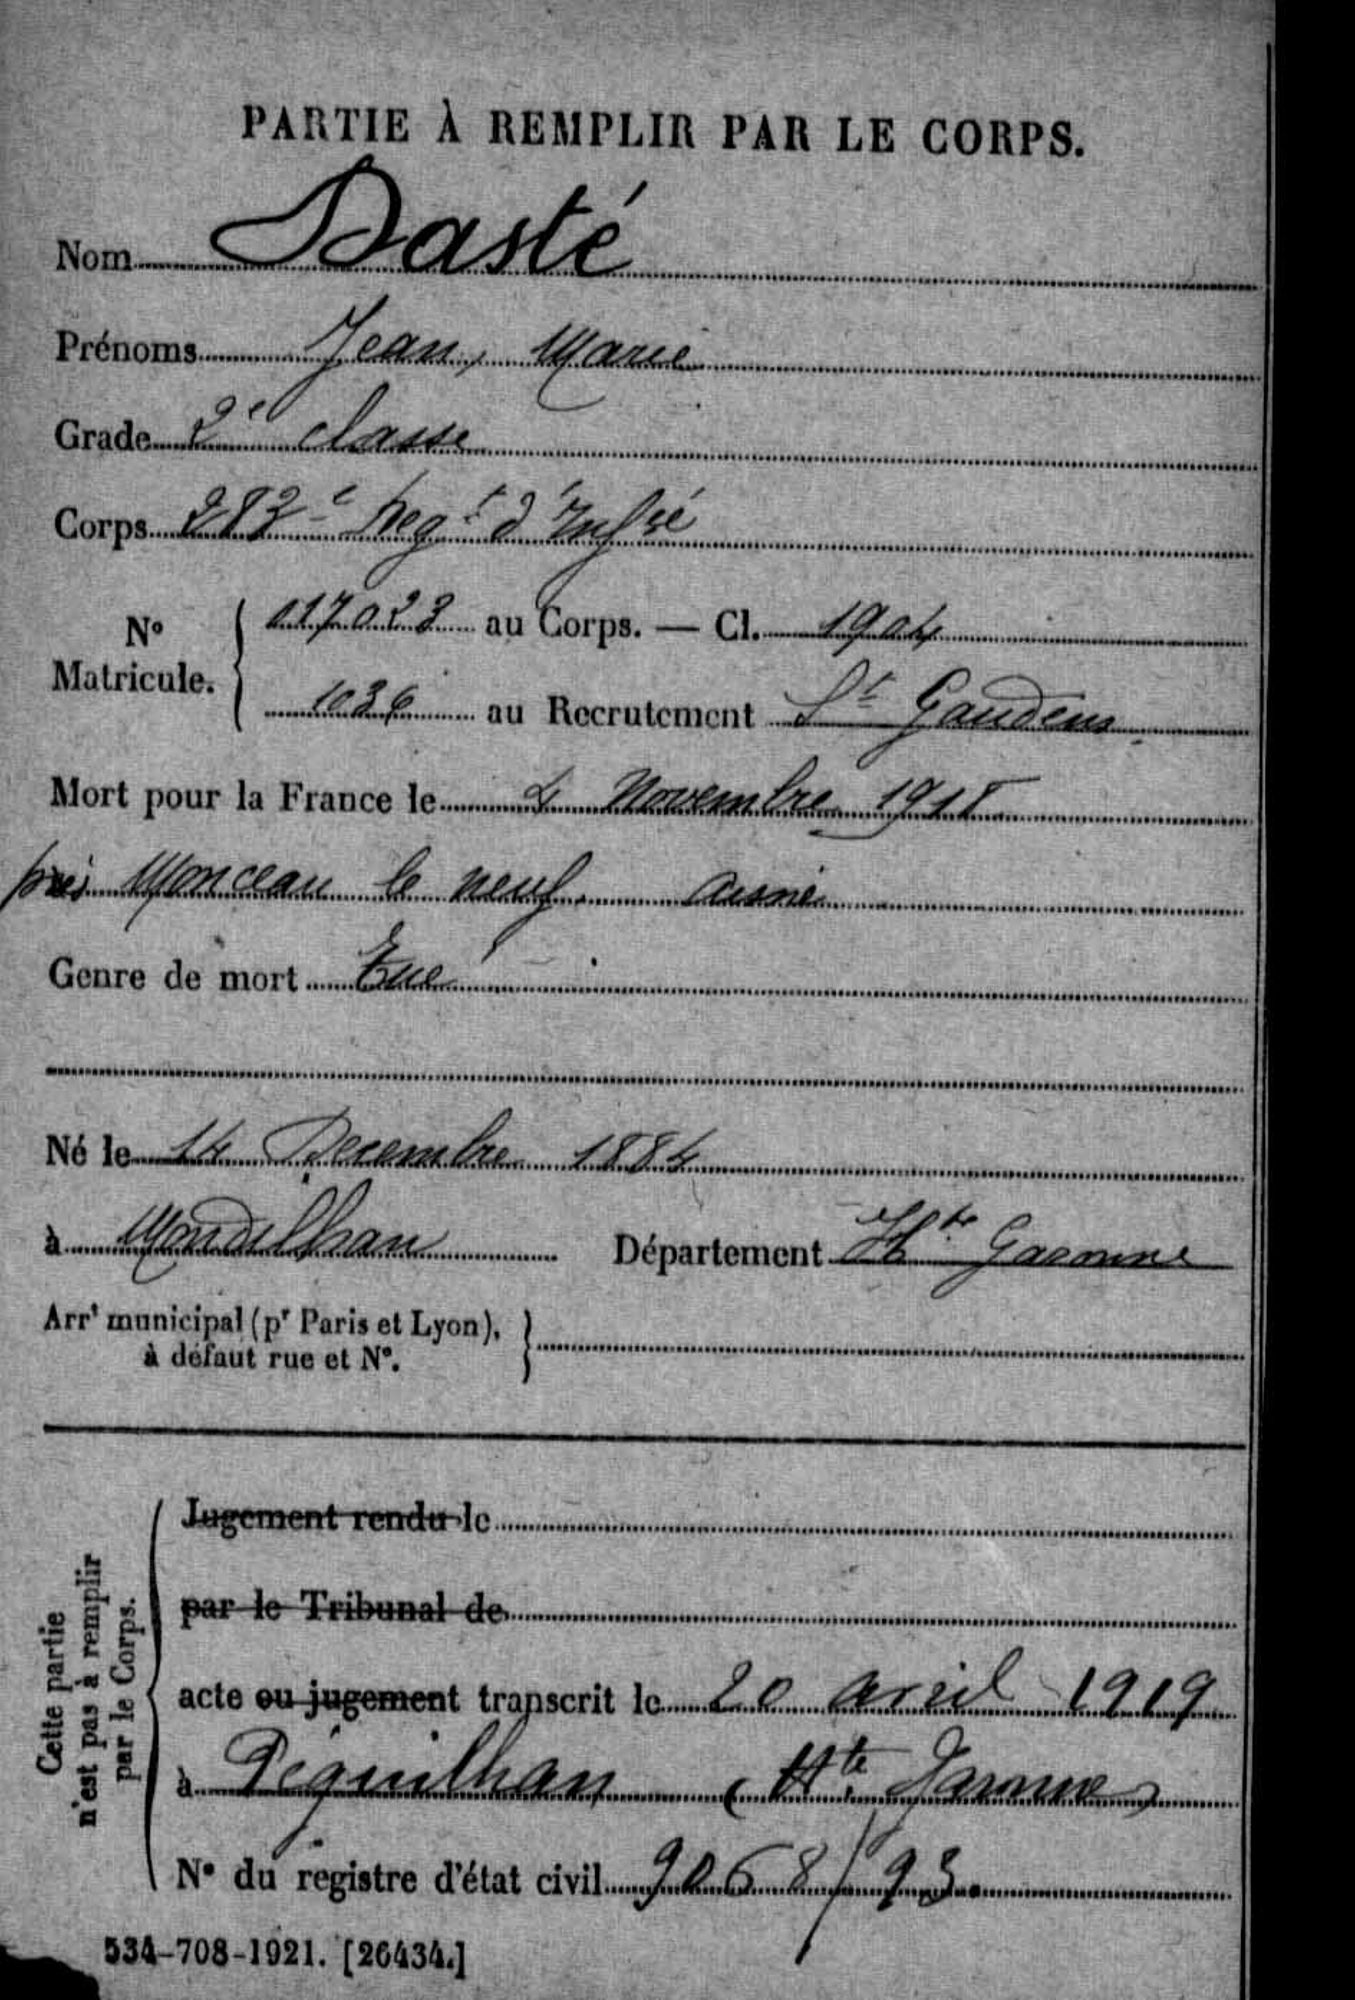 PARTIE À REMPLIR PAR LE CORPS.
Nom Dasté
Prénoms Jean, Marie
Grade 2e classe
Corps 283e Regt d'Infie
No Matricule. 017023 au Corps. — Cl. 1904
1036 au Recrutement St Gaudens
Mort pour la France le 4 Novembre 1918
près Monceau le neuf Aisne
Genre de mort Tué
Né le 14 Decembre 1884
à Mondilhan Département Hte Garonne
Arrt municipal (pr Paris et Lyon),
à défaut rue et No.
Cette partie
n'est pas à remplir
par le Corps.
Jugement rendu le
par le Tribunal de
acte ou jugement transcrit le 20 avril 1919
à Péguilhan (Hte Garonne)
No du registre d'état civil 9068/93.
534-708-1921. [26434.]